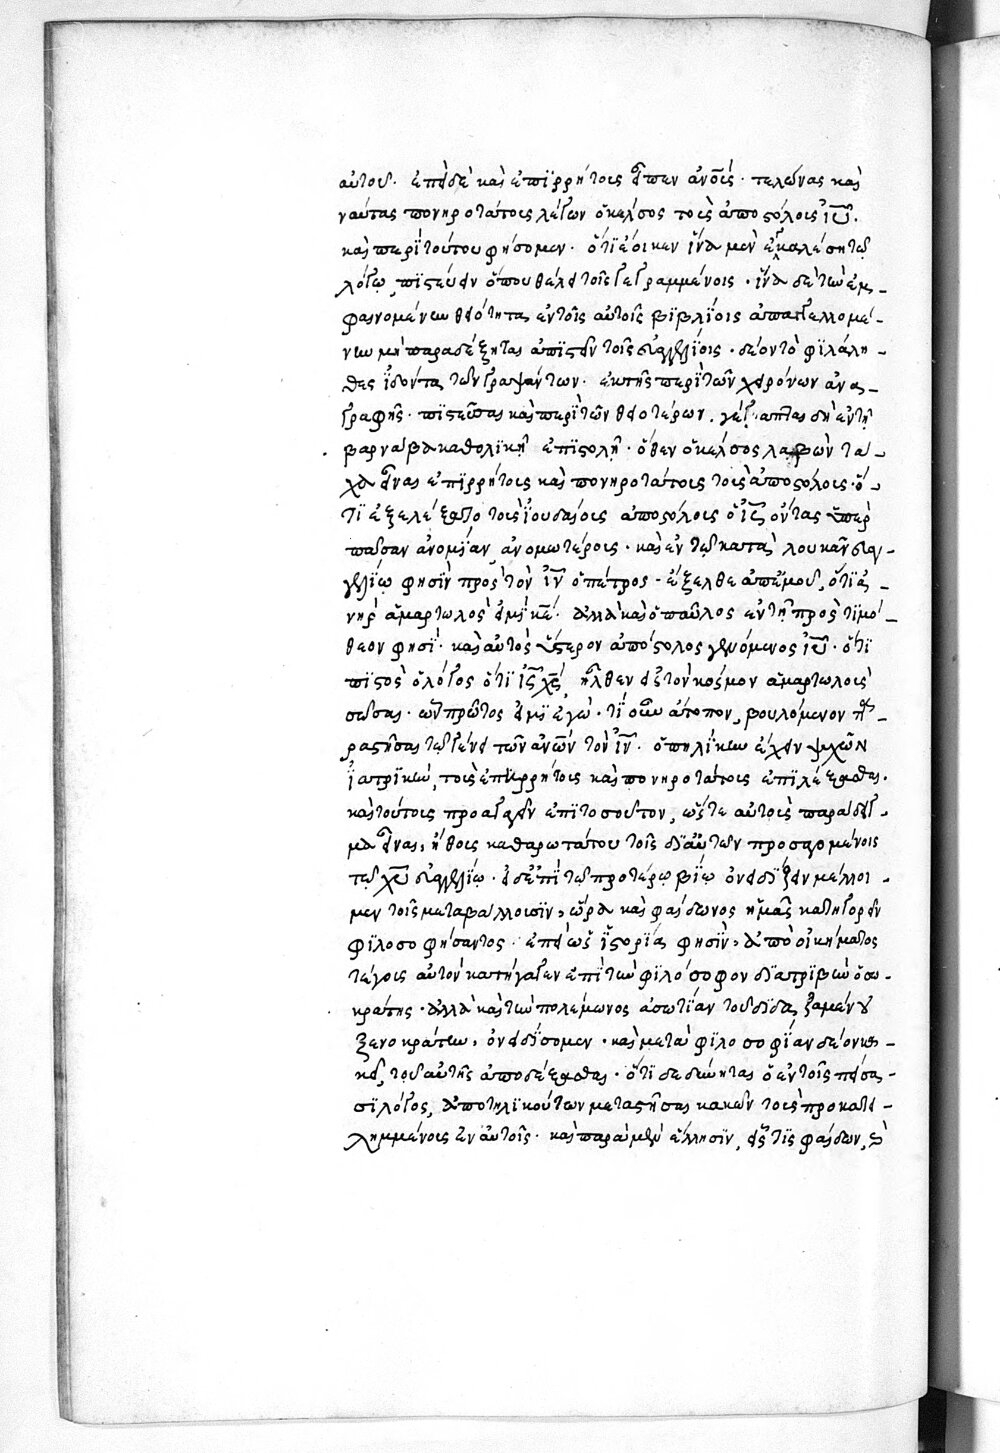 αὐτοῦ. ἐπεὶ δὲ καὶ ἐπιρρήτοις εἶπεν ἀνοῖς· τελώνας καὶ
ναύτας πονηροτάτοις λέγων ὁ κέλσος τοὺς ἀποστόλοις ἰῦ.
καὶ περὶ τούτου φήσομεν· ὅτι ἔοικεν ἵνα μὲν ἐγκαλέσῃ τῷ
λόγῳ, πιστεύειν ὅπου θέλει τοῖς γεγραμμένοις· ἵνα δὲ τὴν ἐμ-
φαινομένην θειότητα ἐν τοῖς αὐτοῖς βιβλίοις ἀπαγγελλομέ-
νην μὴ παραδέξηται ἀπιστεῖν τοῖς εὐαγγελίοις· δέον τὸ φιλάλη-
θες ἰδόντα τῶν γραψάντων. ἐκ τῆς περὶ τῶν χειρόνων ἀνα-
γραφῆς· πιστεῦσαι καὶ περὶ τῶν θειοτέρων. γέγραπται δὴ ἐν τῇ
βαρνάβα καθολικῇ ἐπιστολῇ· ὅθεν ὁ κέλσος λαβὼν τά-
χα εἶναι ἐπιρρήτοις καὶ πονηροτάτοις τοὺς ἀποστόλοις· ὅ-
τι ἐξελέξατο τοὺς ἰουδαίοις ἀποστόλοις ὁ ἰς ὄντας ὑπὲρ
πᾶσαν ἀνομίαν ἀνομωτέροις· καὶ ἐν τῷ κατὰ λουκᾶν εὐαγ-
γελίῳ φησὶν πρὸς τὸν ἰν ὁ πέτρος· ἔξελθε ἀπ' ἐμοῦ, ὅτι ἀ-
νὴρ ἁμαρτωλὸς εἰμὶ κε. ἀλλὰ καὶ ὁ παῦλος ἐν τῇ πρὸς τιμό-
θεον φησί· καὶ αὐτὸς ὕστερον ἀπόστολος γενόμενος ἰῦ· ὅτι
πιστὸς ὁ λόγος ὅτι ἰς χς ἦλθεν εἰς τὸν κόσμον ἁμαρτωλοὺς
σῶσαι· ὧν πρῶτος εἰμὶ ἐγώ· τί οὖν ἄτοπον, βουλόμενον πα-
ραστῆσαι τῷ γένει τῶν ἀνῶν τὸν ἰν· ὁπηλίκην ἔχειν ψυχῶν
ἰατρικήν, τοὺς ἐπιρρήτοις καὶ πονηροτάτοις ἐπιλέξασθαι.
καὶ τούτοις προαγαγεῖν ἐπὶ τοσοῦτον, ὥστε αὐτοὺς παράδειγ-
μα εἶναι, ἤθοις καθαρωτάτου τοῖς δι' αὐτῶν προσαγομένοις
τῷ χῦ εὐαγγελίῳ. εἰ δὲ ἐπὶ τῷ προτέρῳ βίῳ ὀνειδίζειν μέλλοι-
μεν τοῖς μεταβαλλοῦσιν, ὥρα καὶ φαίδωνος ἡμᾶς κατηγορεῖν
φιλοσοφήσαντος. ἐπεὶ ὡς ἱστορία φησὶν, ἀπὸ οἰκήματος
τέγοις αὐτὸν κατήγαγεν ἐπὶ τὴν φιλόσοφον διατριβὴν ὁ σω-
κράτης· ἀλλὰ καὶ τὴν πολέμωνος ἀσωτίαν τοῦ διδαξαμένου
ξενοκράτην, ὀνειδίσομεν· καὶ μετὰ φιλοσοφίαν δέον κα-
κεῖ, τοῦ αὐτῆς ἀποδέξασθαι· ὅτι δεδύνηται ὁ ἐν τοῖς πείσα-
σι λόγος, ἀπὸ τηλικούτων μεταστῆσαι κακῶν τοὺς προκατει-
λημμένοις ἐν αὐτοῖς· καὶ παρὰ μὲν ἕλλησιν, εἷς τις φαίδων, καὶ